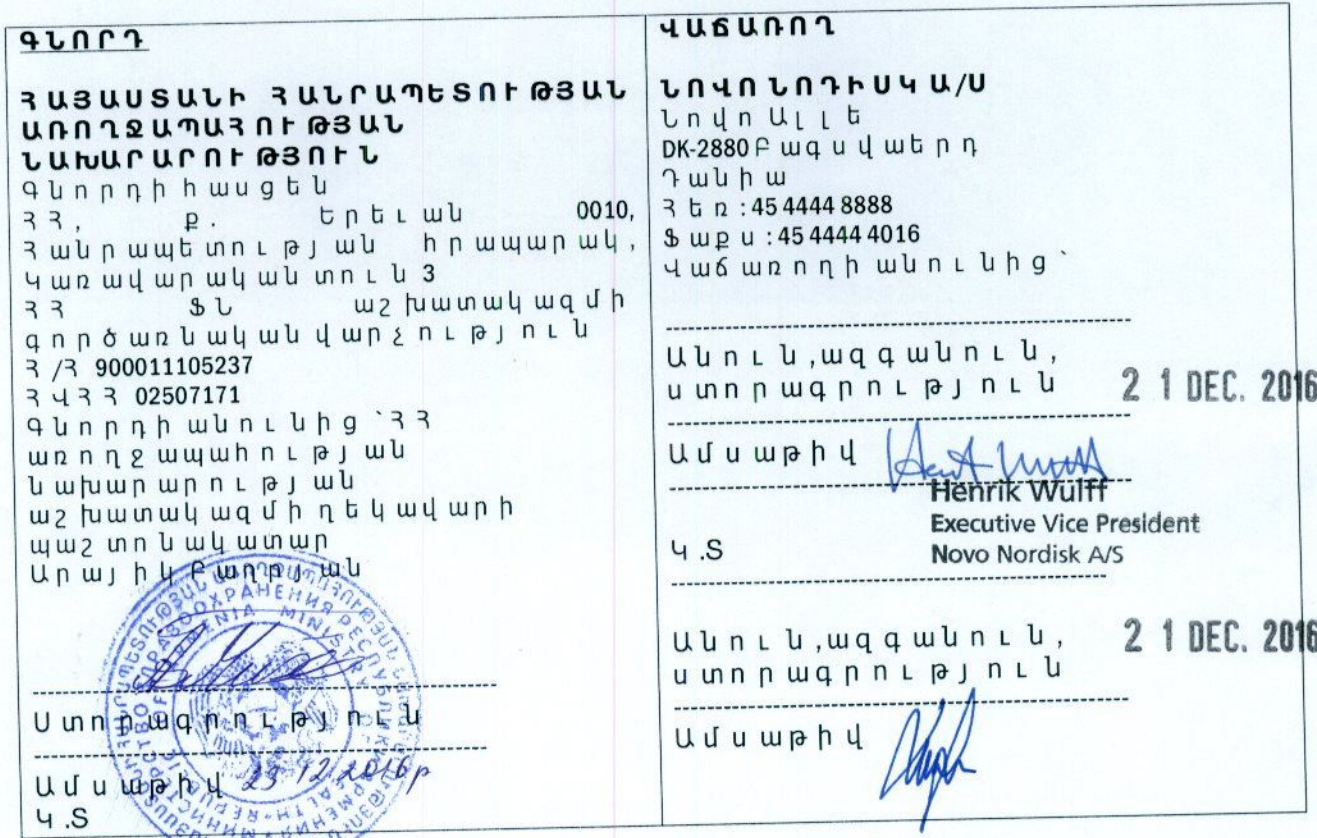 ԳՆՈՐԴ
ՀԱՅԱՍՏԱՆԻ ՀԱՆՐԱՊԵՏՈՒԹՅԱՆ
ԱՌՈՂՋԱՊԱՀՈՒԹՅԱՆ
ՆԱԽԱՐԱՐՈՒԹՅՈՒՆ
Գնորդի հասցեն
ՀՀ, ք. Երեւան 0010,
Հանրապետության հրապարակ,
Կառավարական տուն 3
ՀՀ ՖՆ աշխատակազմի
գործառնական վարչություն
Հ/Հ 900011105237
ՀՎՀՀ 02507171
Գնորդի անունից ՝ ՀՀ
առողջապահության
նախարարության
աշխատակազմի ղեկավարի
պաշտոնակատար
Արայիկ Բաղրյան
Ստորագրություն
Ամսաթիվ 23 12 2016թ
Կ.Տ
ՎԱՃԱՌՈՂ
ՆՈՎՈ ՆՈԴԻՍԿ Ա/Ս
Նովո Ալլե
DK-2880 Բագսվաերդ
Դանիա
Հեռ: 45 4444 8888
Ֆաքս: 45 4444 4016
Վաճառողի անունից ՝
Անուն,ազգանուն,
ստորագրություն
2 1 DEC. 2016
Ամսաթիվ
Henrik Wulff
Executive Vice President
Novo Nordisk A/S
Կ.Տ
Անուն,ազգանուն,
ստորագրություն
2 1 DEC. 2016
Ամսաթիվ